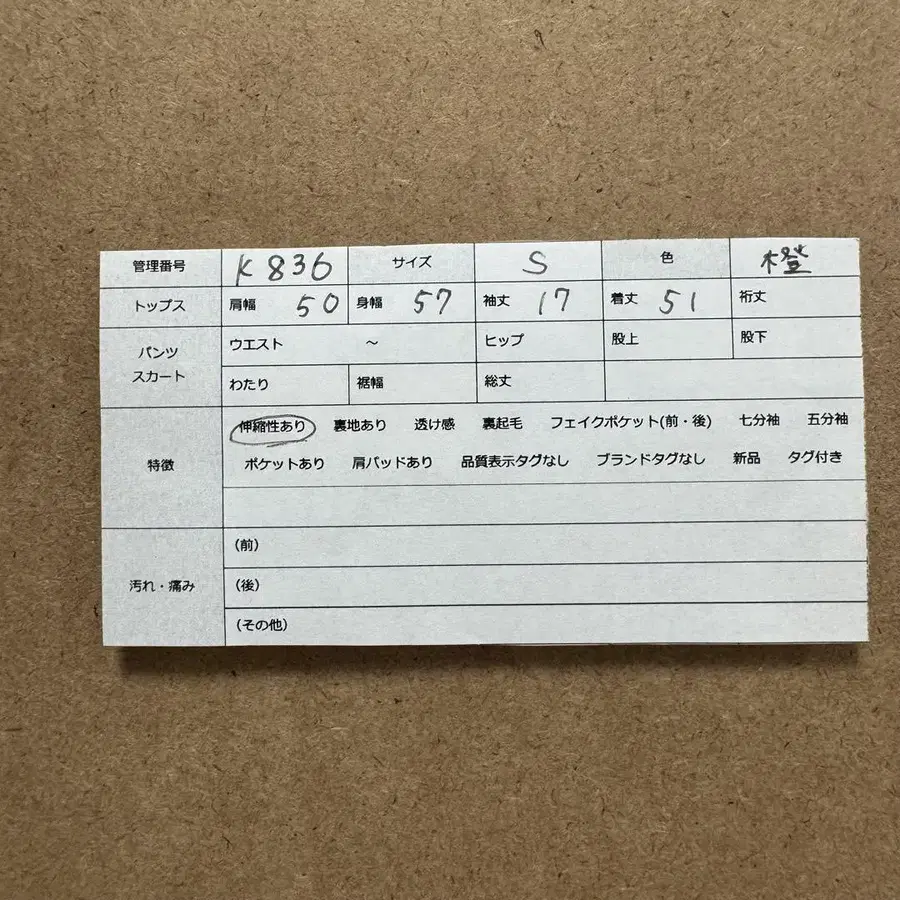 管理番号 K836 サイズ S 色 橙
トップス 肩幅 50 身幅 57 袖丈 17 着丈 51 裄丈
パンツ スカート ウエスト ～ ヒップ 股上 股下
わたり 裾幅 総丈
特徴 伸縮性あり 裏地あり 透け感 裏起毛 フェイクポケット(前・後) 七分袖 五分袖
ポケットあり 肩パッドあり 品質表示タグなし ブランドタグなし 新品 タグ付き
汚れ・痛み (前)
(後)
(その他)